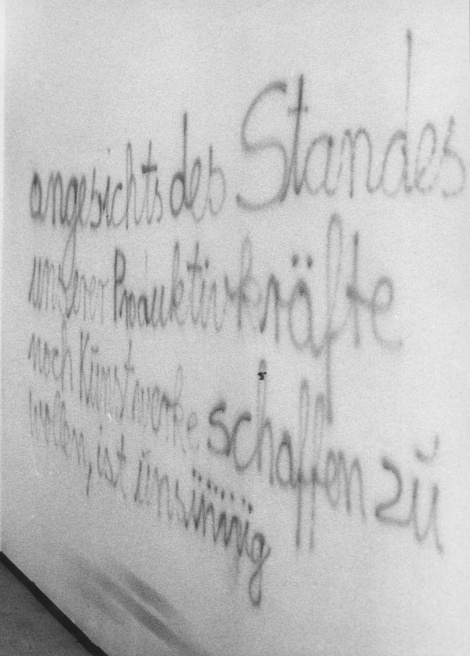 angesichts des Standes
unserer Produktivkräfte
noch Kunstwerke schaffen zu
wollen, ist unsinnig